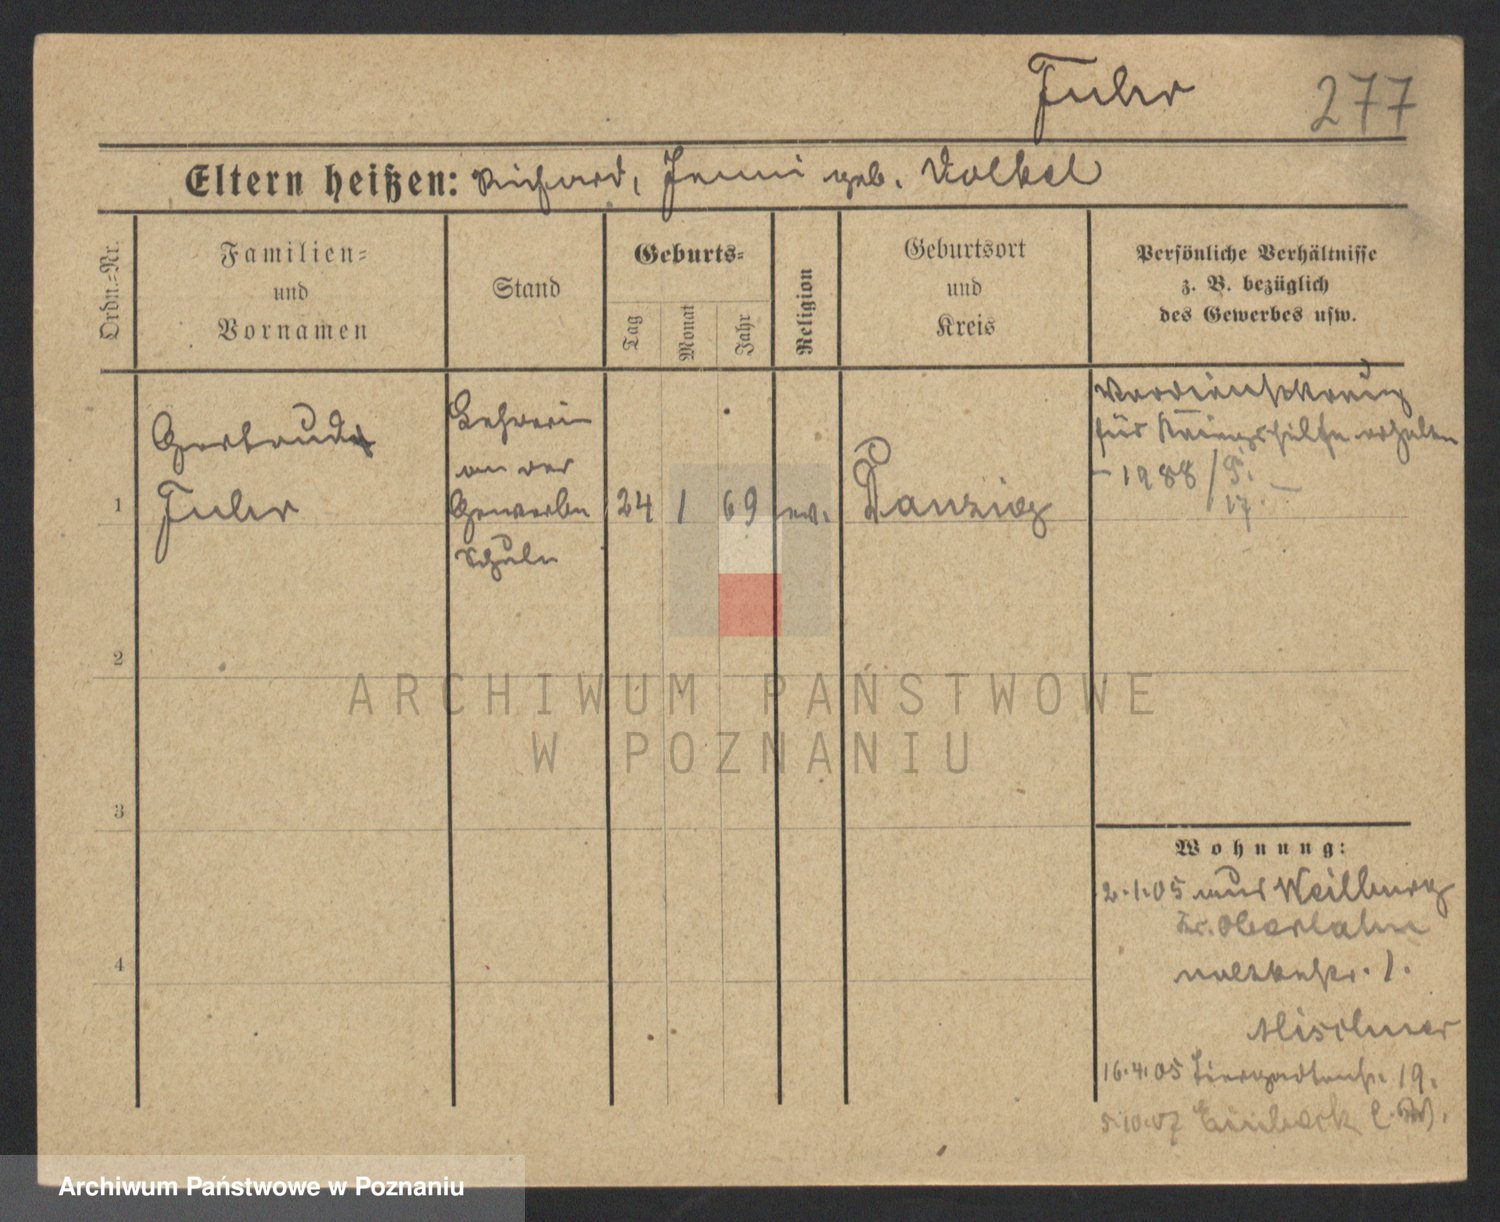 Fuhr 277
Eltern heißen: Richard, Jenni geb. Volkel
Ordn.=Nr.
Familien=
und
Vornamen
Stand
Geburts=
Tag
Monat
Jahr
Religion
Geburtsort
und
Kreis
Persönliche Verhältnisse
z. B. bezüglich
des Gewerbes usw.
1
Gertrude
Fuhr
Lehrerin
an der
Gewerbe
Schule
24 1 69 ev.
Danzig
Verdienstkreuz
für Kriegshilfe erhalten
- 1988/5.17. -
2
3
4
Wohnung:
2.1.05 aus Weilburg
Kr. Oberlahn
Moltkestr. 1.
16.4.05 Tiergartenstr. 19.
5.10.07 Einbeck
ARCHIWUM PAŃSTWOWE
W POZNANIU
Archiwum Państwowe w Poznaniu